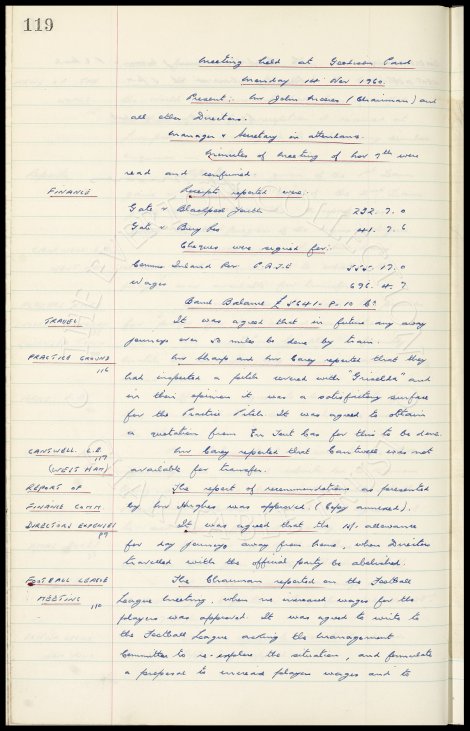 119
Meeting held at Goodison Park
Monday 14 Nov 1960.
Present:- Mr John Moores (Chairman) and
all other Directors.
Manager & Secretary in attendance.
Minutes of meeting of Nov 7th were
read and confirmed.
FINANCE
Receipts reported were:
Gate v Blackpool Youth 232. 7. 0
Gate v Bury Res 41. 7. 6
Cheques were signed for:-
Comm: Inland Rev P.A.Y.E 555. 17. 0
Wages 696. 4. 7
Bank Balance £
TRAVEL
It was agreed that in future any away
journeys over 50 miles be done by train.
PRACTICE GROUND
116
Mr Sharp and Mr Carey reported that they
had inspected a pitch covered with "Griselda" and
in their opinion it was a satisfactory surface
for the Practice Pitch. It was agreed to obtain
a quotation from En Tout Cas for this to be done.
CANTWELL.
117
(WEST HAM)
Mr Carey reported that Cantwell was not
available for transfer.
REPORT OF
FINANCE COMM
The report of recommendations as presented
by Mr Hughes was approved. (Copy annexed).
DIRECTORS EXPENSES
89
It was agreed that the allowance
for day journeys away from home, when Directors
travelled with the official party be abolished.
FOOTBALL LEAGUE
MEETING
110
The Chairman reported on the Football
League Meeting, when no increased wages for the
players was approved. It was agreed to write to
the Football League asking the Management
Committee to re-explore the situation, and formulate
a proposal to increase players wages and to